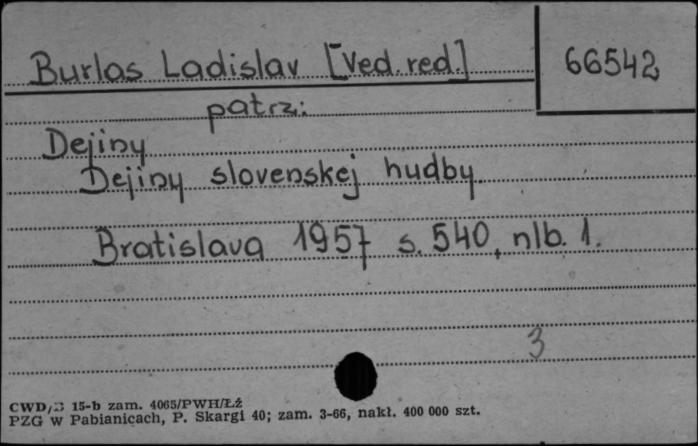 Burlas Ladislav [Ved. red.]
66542
patrz:
Dejiny
Dejiny slovenskej hudby
Bratislava 1957 s. 540, nlb. 1.
3
CWD/B 15-b zam. 4065/PWH/Łź
PZG w Pabianicach, P. Skargi 40; zam. 3-66, nakł. 400 000 szt.